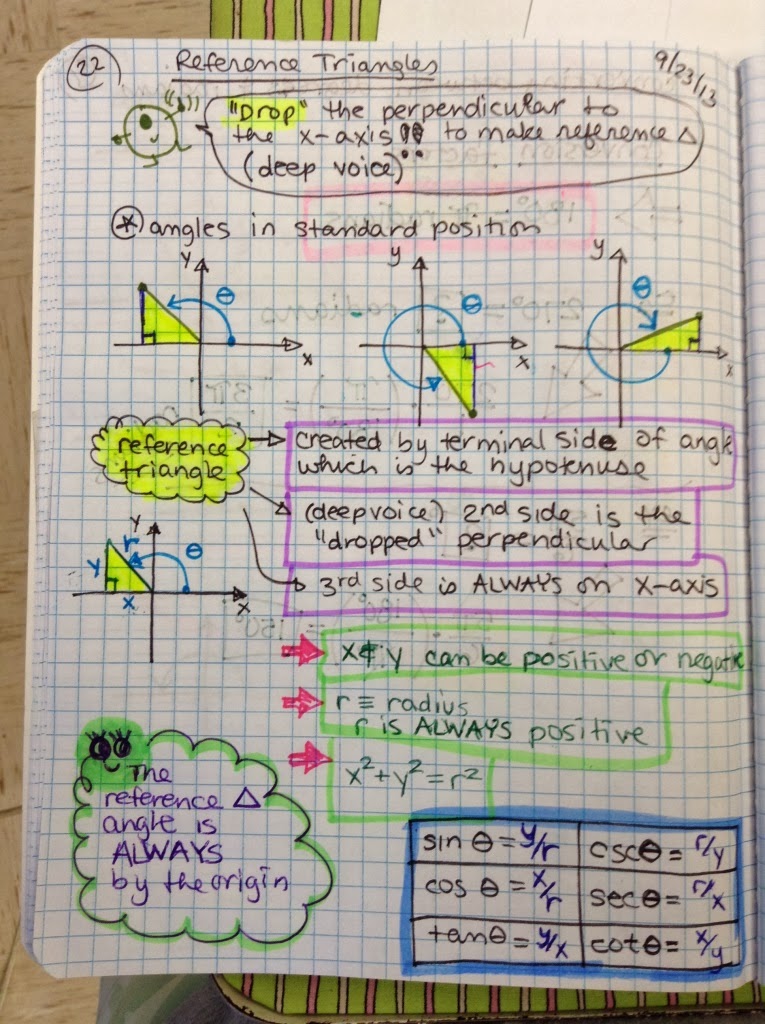 22
Reference Triangles
9/23/13
"Drop" the perpendicular to
the x-axis!! to make reference Δ
(deep voice)
* angles in standard position
y θ x
y θ x
y θ x
reference
triangle
created by terminal side of angle
which is the hypotenuse
(deep voice) 2nd side is the
"dropped" perpendicular
3rd side is ALWAYS on x-axis
y r θ
y x x
x & y can be positive or negative
r ≡ radius
r is ALWAYS positive
x² + y² = r²
The
reference Δ
angle is
ALWAYS
by the origin
sin θ = y/r cscθ = r/y
cos θ = x/r secθ = r/x
tanθ = y/x cotθ = x/y